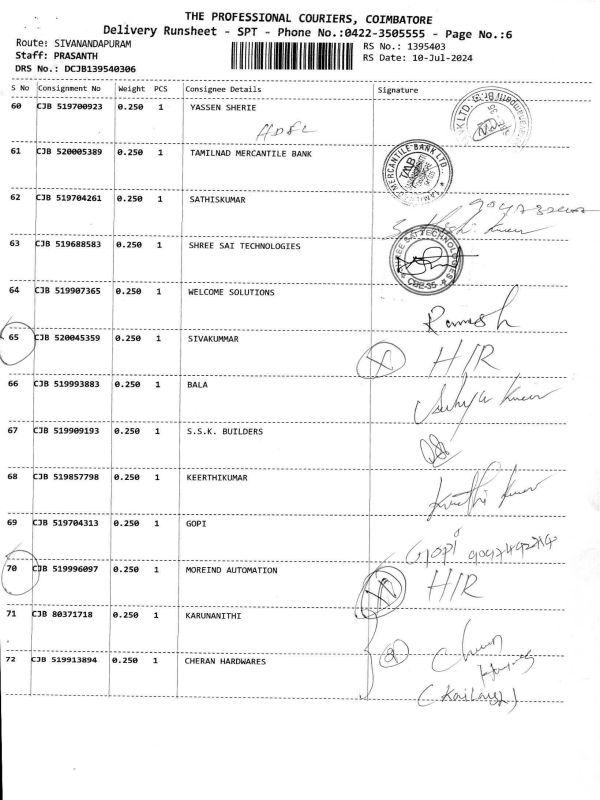 THE PROFESSIONAL COURIERS, COIMBATORE
Delivery Runsheet - SPT - Phone No.:0422-3505555 - Page No.:6
Route: SIVANANDAPURAM
RS No.: 1395403
Staff: PRASANTH
RS Date: 10-Jul-2024
DRS No.: DCJB139540306
S No Consignment No Weight PCS Consignee Details Signature
60 CJB 519700923 0.250 1 YASSEN SHERIE
61 CJB 520005389 0.250 1 TAMILNAD MERCANTILE BANK
MERCANTILE BANK LTD.
TMB
62 CJB 519704261 0.250 1 SATHISKUMAR
63 CJB 519688583 0.250 1 SHREE SAI TECHNOLOGIES
SHREE SAI TECHNOLOGIES
CBE-35
64 CJB 519907365 0.250 1 WELCOME SOLUTIONS
Ramesh
65 CJB 520045359 0.250 1 SIVAKUMMAR
H/R
66 CJB 519993883 0.250 1 BALA
67 CJB 519909193 0.250 1 S.S.K. BUILDERS
68 CJB 519857798 0.250 1 KEERTHIKUMAR
Keerthi Kumar
69 CJB 519704313 0.250 1 GOPI
Gopi
70 CJB 519996097 0.250 1 MOREIND AUTOMATION
H/R
71 CJB 80371718 0.250 1 KARUNANITHI
72 CJB 519913894 0.250 1 CHERAN HARDWARES